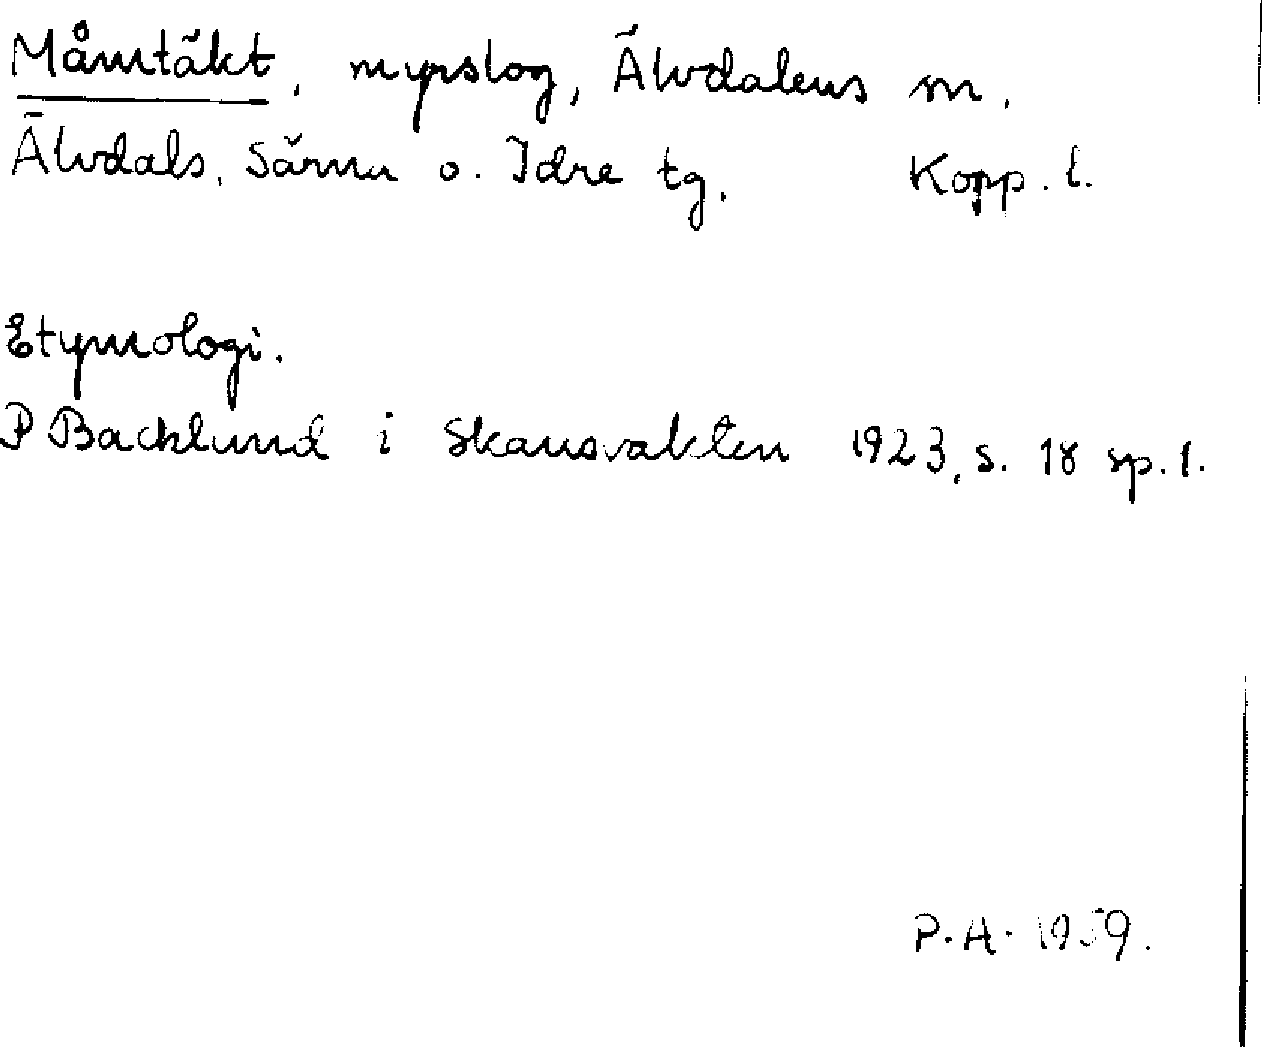 Måmtäkt, myrslog, Älvdalens m.
Älvdals, Särna o. Idre tg. Kopp. l.
Etymologi.
P Backlund i Skansvakten 1923, s. 18 sp. 1.
P. A. 1959.